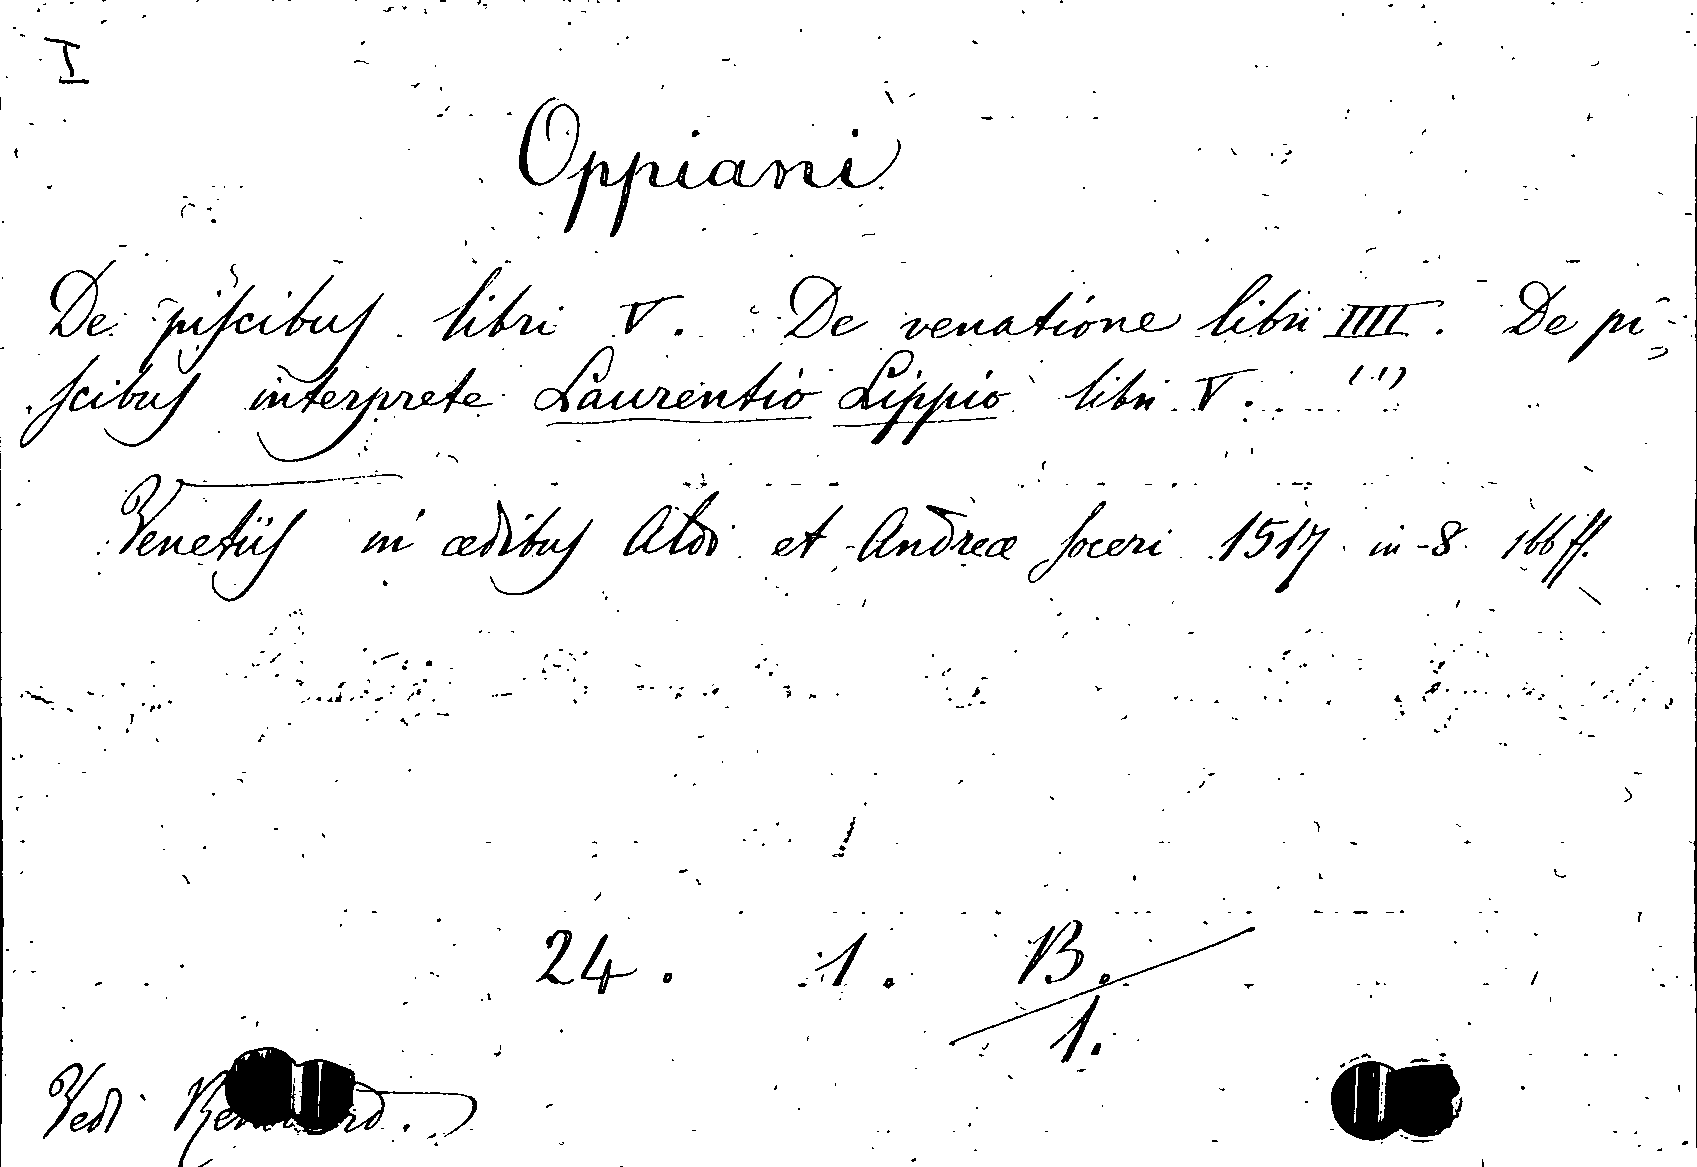 I
Oppiani
De piscibus libri V. De venatione libri IIII. De pi-
scibus interprete Laurentio Lippio libri V.
Venetiis in ædibus Aldi et Andreæ soceri 1517 in-8 166 ff.
24. 1. B.
1.
Vedi